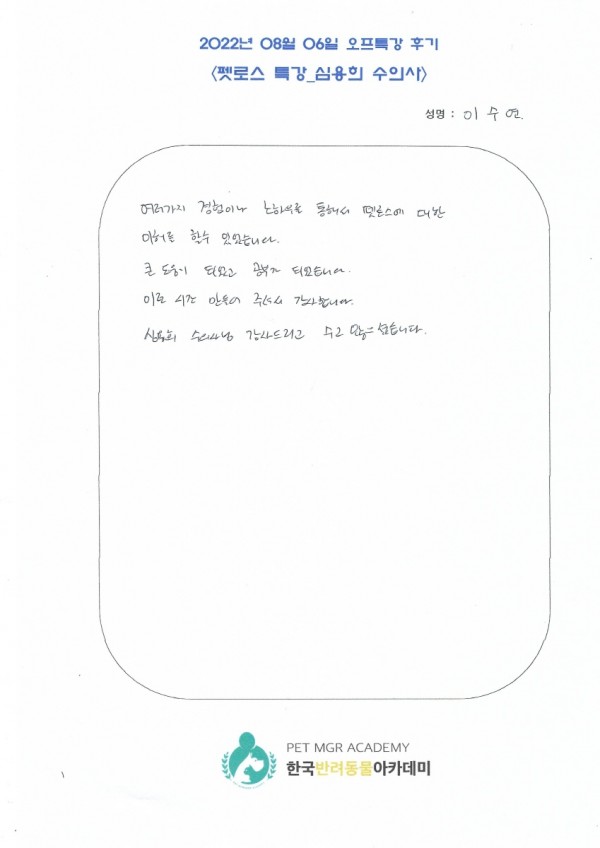 2022년 08월 06일 오프특강 후기
<펫로스 특강_심용희 수의사>
성명 : 이수연.
여러가지 경험이나 노하우를 통해서 펫로스에 대한
이해를 할수 있었습니다.
큰 도움이 되었고 공부가 되었습니다.
이런 시간 만들어 주셔서 감사합니다.
심용희 수의사님 감사드리고 수고 많으셨습니다.
PET MGR ACADEMY
한국반려동물아카데미